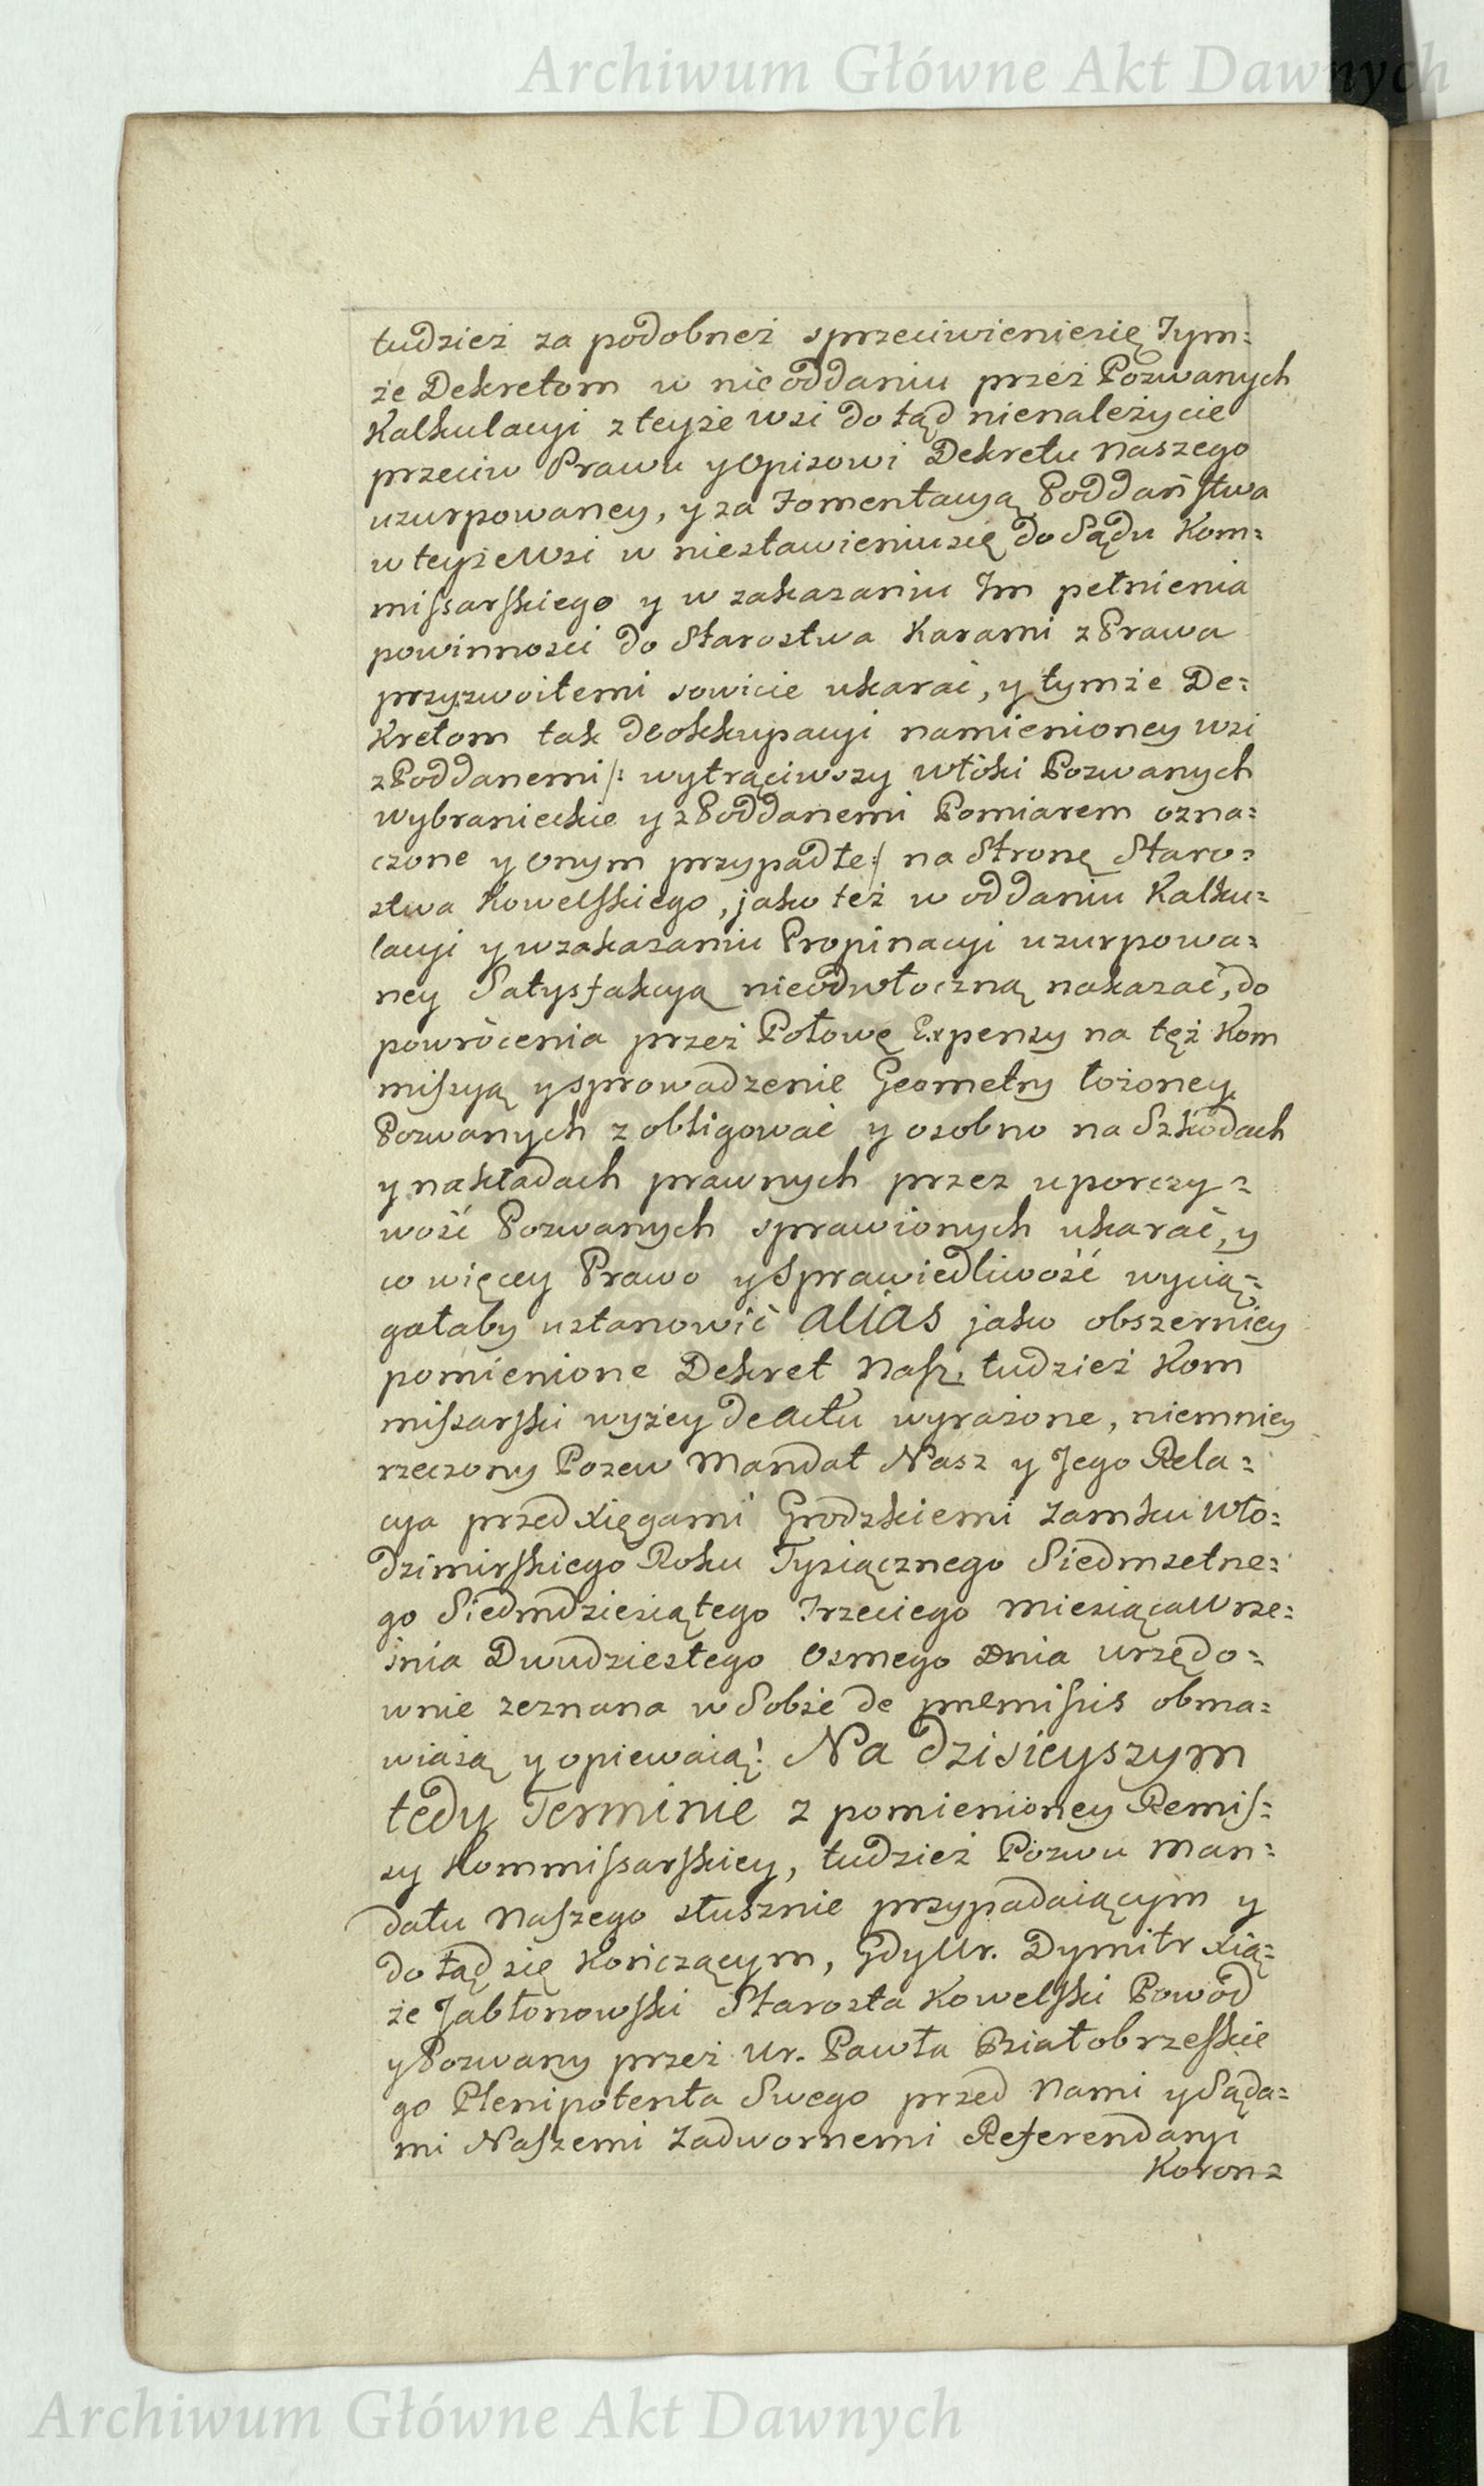 Archiwum Główne Akt Dawnych
tudzież za podobneż sprzeciwieniesię Tym=
że Dekretom w nieoddaniu przeż Pozwanych
Kalkulacyi z teyże wsi do tąd nienależycie
przeciw Prawu y Opisowi Dekretu Naszego
uzurpowaney, y za Fomentacyą Poddaństwa
w teyże Wsi w niestawieniusię do Sądu Kom=
missarskiego y w zakazaniu Im pełnienia
powinnosci do Starostwa Karami z Prawa
przyzwoitemi sowicie ukarać, y tymże De=
kretom tak deokkupacyi namienioney wsi
z Poddanemi /: wytrąciwszy włoki Pozwanych
wybranieckie y z Poddanemi Pomiarem ozna=
czone y onym przypadłe :/ na Stronę Staro=
stwa Kowelskiego, jako też w oddaniu Kalku=
lacyi y w zakazaniu Propinacyi uzurpowa=
ney Satysfakcyą nieodwłoczną nakazać, do
powrócenia przeż Połowę Expensy na tęż Kom
missyą y sprowadzenie Geometry łożoney
Pozwanych zobligować y osobno na Szkodach
y nakładach prawnych przez uporczy=
wość Pozwanych sprawionych ukarać, y
co więcey Prawo y Sprawiedliwość wycią=
gałaby ustanowić alias jako obszerniey
pomienione Dekret Nasz, tudzież Kom
missarski wyżey de actu wyrażone, niemniey
rzeczony Pozew Mandat Nasz y Jego Rela=
cya przed Xięgami Grodzkiemi Zamku Wło=
dzimirskiego Roku Tysiącznego Siedmsetne=
go Siedmdziesiątego Trzeciego Miesiąca Wrze=
śnia Dwudziestego Osmego Dnia urzędo=
wnie zeznana w Sobie de præmissis obma=
wiaią y opiewaią! Na dzisieyszym
tedy Terminie z pomienioney Remis=
sy Kommissarskiey, tudzież Pozwu Man=
datu Naszego słusznie przypadaiącym y
do tąd się kończącym, Gdy Ur. Dymitr Xią=
że Jabłonowski Starosta Kowelski Powód
y Pozwany przeż Ur. Pawła Białobrzeskie
go Plenipotenta Swego przed Nami y Sąda=
mi Naszemi Zadwornemi Referendaryi
Koron=
Archiwum Główne Akt Dawnych